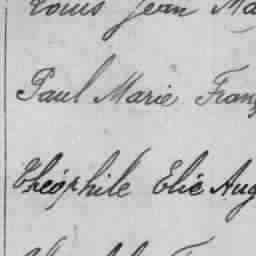 Louis Jean Ma
Paul Marie Franç
Théophile Elie Aug